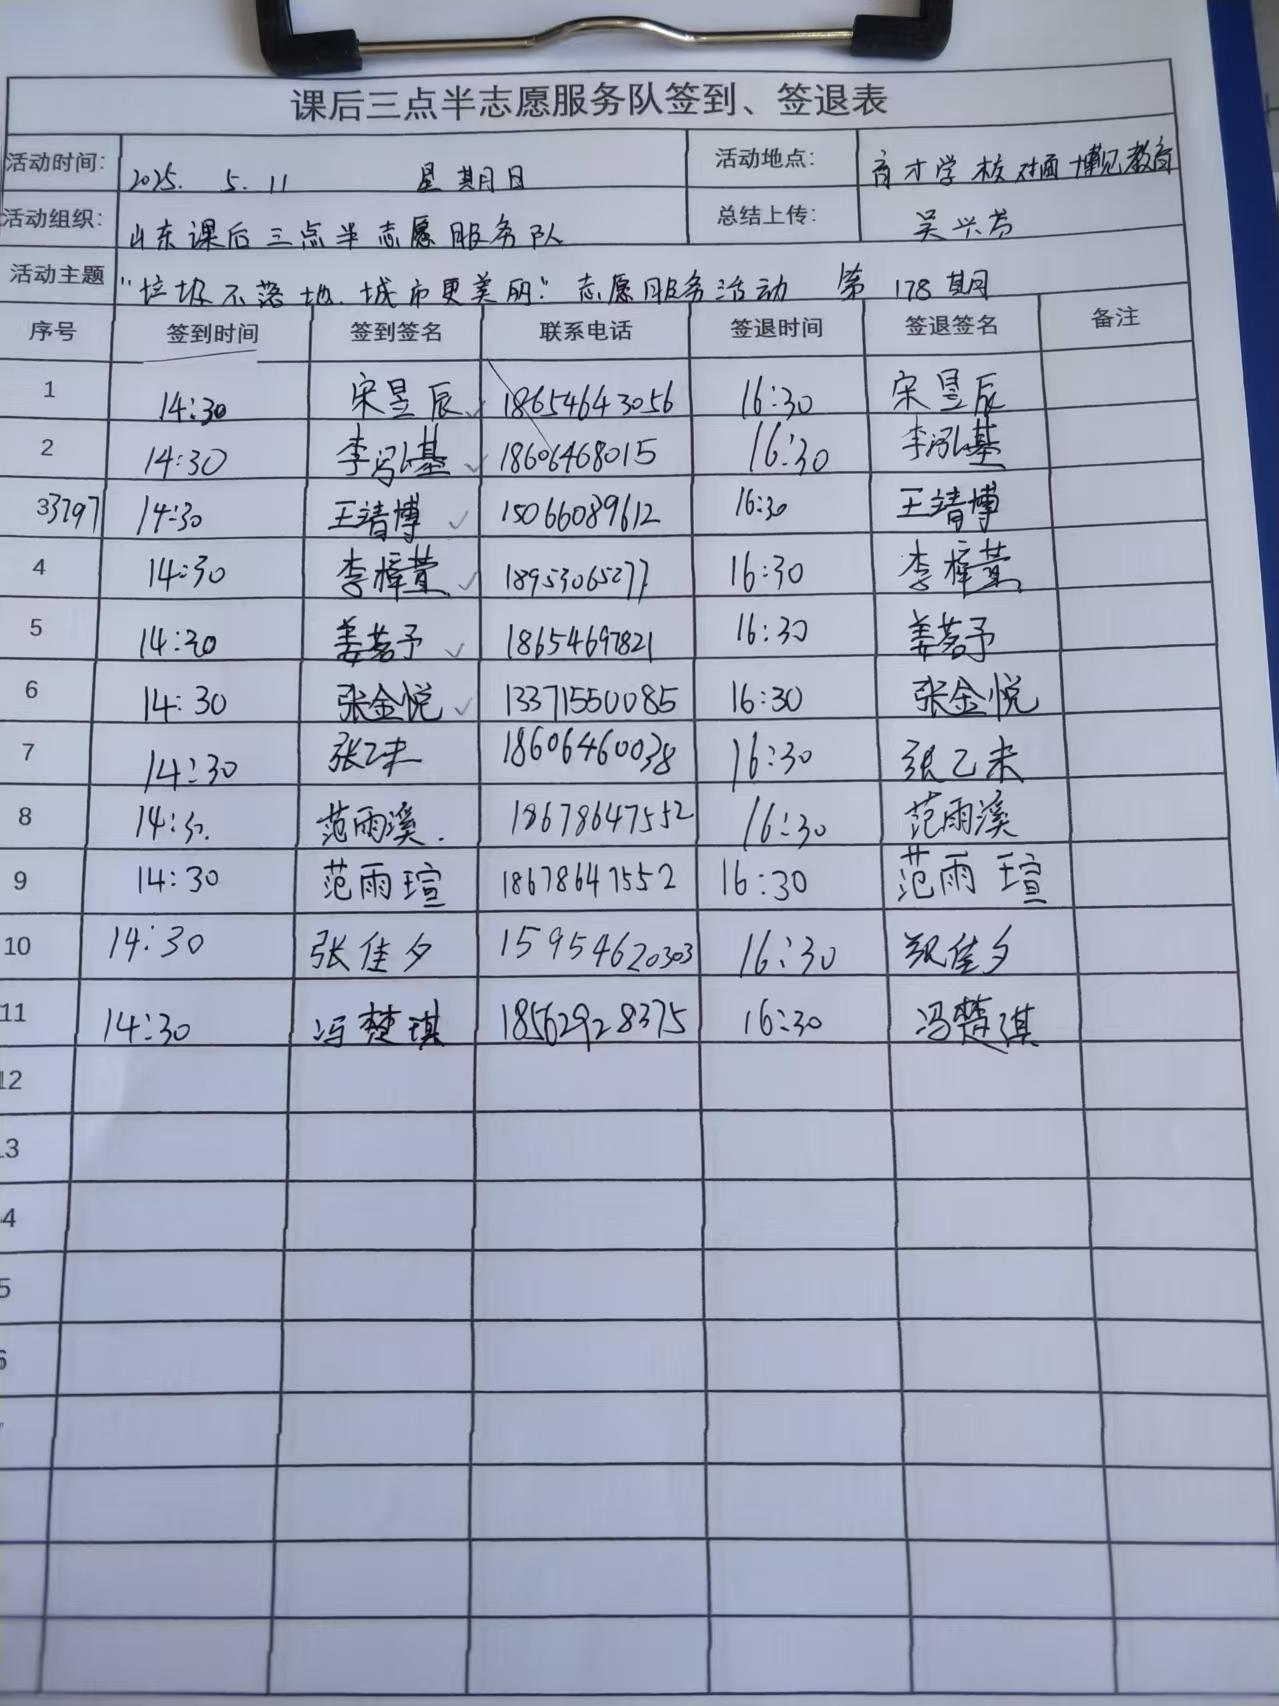 课后三点半志愿服务队签到、签退表
活动时间: 2025. 5. 11 星期日 活动地点: 育才学校对面博见教育
活动组织: 山东课后三点半志愿服务队 总结上传: 吴兴芳
活动主题 "垃圾不落地.城市更美丽" 志愿服务活动 第 178 期
序号 签到时间 签到签名 联系电话 签退时间 签退签名 备注
1 14:30 宋昱辰 ✓ 18654643056 16:30 宋昱辰
2 14:30 李泓基 ✓ 18606468015 16:30 李泓基
33797 14:30 王靖博 ✓ 15066089612 16:30 王靖博
4 14:30 李梓萱 ✓ 18953065277 16:30 李梓萱
5 14:30 姜茗予 ✓ 18654697821 16:30 姜茗予
6 14:30 张金悦 ✓ 13371550085 16:30 张金悦
7 14:30 张乙未 18606460038 16:30 张乙未
8 14:30. 范雨溪. 18678647552 16:30 范雨溪
9 14:30 范雨瑄 18678647552 16:30 范雨瑄
10 14:30 张佳夕 15954620303 16:30 张佳夕
11 14:30 冯楚琪 18562928375 16:30 冯楚琪
12
13
14
5
6